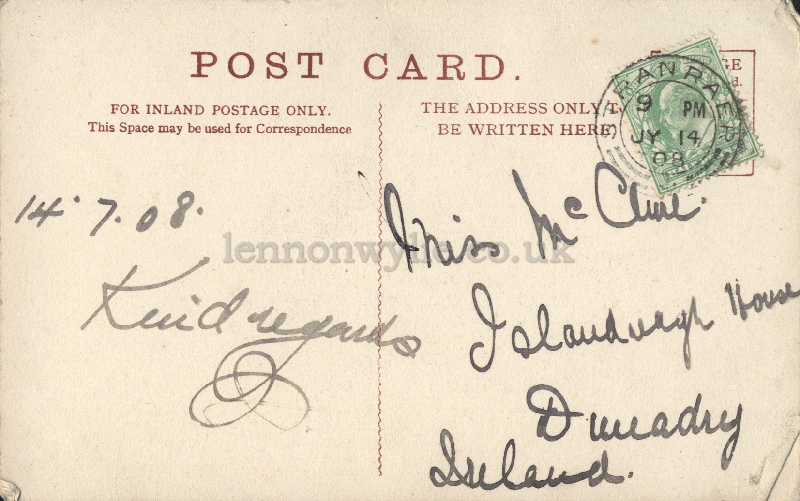 POST CARD.
FOR INLAND POSTAGE ONLY.
This Space may be used for Correspondence
THE ADDRESS ONLY T
BE WRITTEN HERE
GE
d.
STRANRAER
9 PM
JY 14
08
14.7.08.
Kind regards
Miss McClure.
Islandreagh House
Dunadry
Ireland.
lennonwylie.co.uk